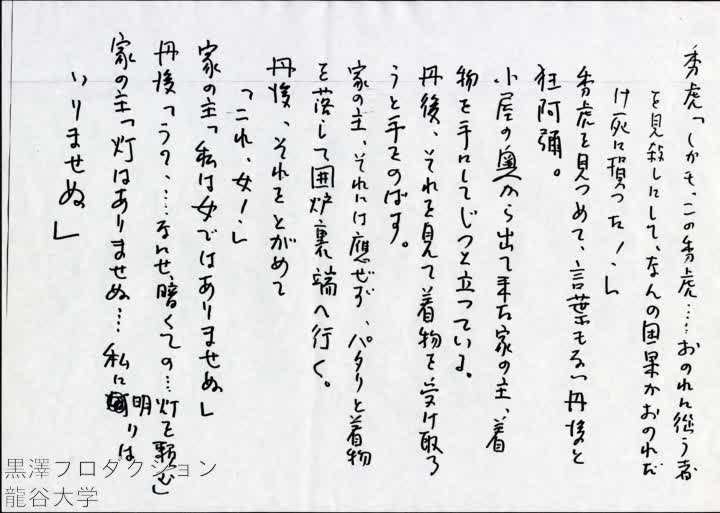 秀虎「しかも、この秀虎……おのれに従う者
を見殺しにして、なんの因果かおのれだ
け死に損った！」
秀虎を見つめて、言葉もない丹後と
狂阿彌。
小屋の奥から出て来た家の主、着
物を手にしてじっと立っている。
丹後、それを見て着物を受け取ろ
うと手をのばす。
家の主、それには應ぜず、パタリと着物
を落して囲炉裏端へ行く。
丹後、それをとがめて
「これ、女！」
家の主「私は女ではありませぬ」
丹後「うむ、……なにせ、暗くての…灯を頼む」
家の主「灯はありませぬ…私に明りは
いりませぬ」
黒澤プロダクション
龍谷大学